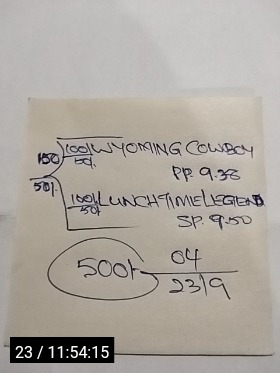 100/. WYOMING COWBOY
50/.
150
50/.
PP. 9.38
100/. LUNCHTIME LEGEND
50/.
SP. 9.50
500/-
04
23/9
23 / 11:54:15